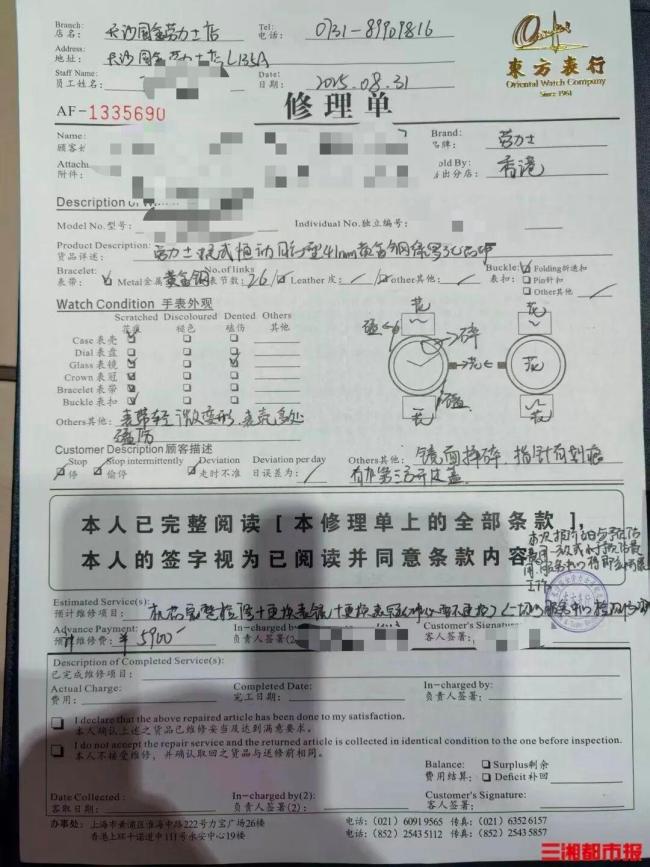 Branch: 店名: 长沙国金劳力士店
Tel: 电话: 0731-89909816
Address: 地址: 长沙国金劳力士店L135A
Staff Name: 员工姓名:
Date: 日期: 2025.08.31
東方表行
Oriental Watch Company
Since 1961
AF-1335690
修理单
Name: 顾客
Brand: 品牌: 劳力士
附件:
old By: 出分店: 香港
Description of
Model No.型号:
Individual No.独立编号:
Product Description: 货品详述: 劳力士 恒动 41mm黄金钢
Bracelet: 表带: Metal金属 黄金钢
No.of links 表节数: 26
Leather 皮:
other其他:
Buckle: 表扣:
Folding折迭扣
Pin针扣
Other其他
Watch Condition 手表外观
Scratched 花痕
Discoloured 褪色
Dented 磕伤
Others 其他
Case 表壳
Dial 表盘
Glass 表镜
Crown 表冠
Bracelet 表带
Buckle 表扣
花
花
磕
碎
花
花
磕
花
花
Others其他: 表带轻微变形,表壳多处磕伤
Customer Description 顾客描述
Stop 停
Stop intermittently 偷停
Deviation 走时不准
Deviation per day 日误差为:
Others其他: 镜面摔碎,指针有划痕
有办第三方开过盖
本人已完整阅读[本修理单上的全部条款],
本人的签字视为已阅读并同意条款内容
Estimated Service(s): 预计维修项目: 机芯完整检修+更换表镜+更换表
Advance Payment: 预计维修费: ¥5900
In-charged by: 负责人签署:(2
Customer's Signature: 客人签署:
Description of Completed Service(s):
已完成维修项目:
Actual Charge: 费用:
Completed Date: 完工日期:
In-charged by: 负责人签署:
I declare that the above repaired article has been done to my satisfaction.
本人确认上述之货品已维修妥当及达到满意要求。
I do not accept the repair service and the returned article is collected in identical condition to the one before inspection.
本人不接受维修,并确认取回之货品与送修前相同。
Balance: 费用结算:
Surplus剩余
Deficit 补回
Date Collected: 客取日期:
In-charged by:(2) 负责人签署(2):
Customer's Signature: 客人签署:
办事处: 上海市黄浦区淮海中路222号力宝广场26楼
电话:(021) 6091 9565 传真:(021) 6352 6157
香港上环干诺道中111号永安中心19楼
电话:(852) 2543 5112 传真:(852) 2543 5857
三湘都市报